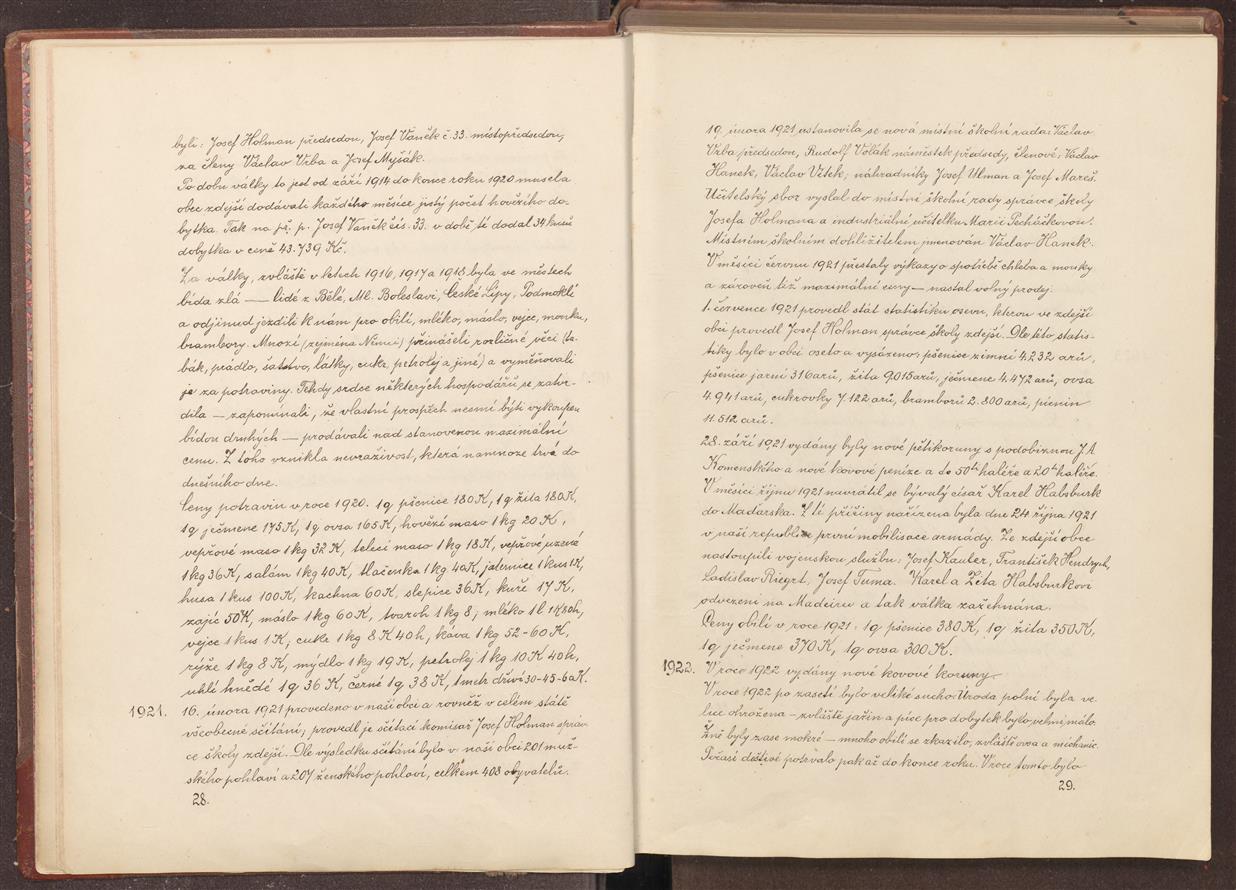 byli: Josef Holman předsedou, Josef Vaněk č. 33. místopředsedou,
za členy Václav Vrba a Josef Myšák.
Po dobu války to jest od září 1914 do konce roku 1920 musela
obec zdejší dodávati každého měsíce jistý počet hovězího do-
bytka. Tak na př. p. Josef Vaněk čís. 33. v době té dodal 34 kusů
dobytka v ceně 43.739 Kč.
Za války, zvláště v letech 1916, 1917 a 1918 byla ve městech
bída zlá — lidé z Bělé, Ml. Boleslavi, České Lípy, Podmoklí
a odjinud jezdili k nám pro obilí, mléko, máslo, vejce, mouku,
brambory. Mnozí (zejména Němci) přinášeli rozličné věci (ta-
bák, prádlo, šatstvo, látky, cukr, petrolej a jiné) a vyměňovali
je za potraviny. Tehdy srdce některých hospodářů se zatvr-
dila — zapomínali, že vlastní prospěch nesmí býti vykoupen
bídou druhých — prodávali nad stanovenou maximální
cenu. Z toho vznikla nevraživost, která namnoze trvá do
dnešního dne.
Ceny potravin v roce 1920. 1q pšenice 180 K, 1q žita 180 K,
1q ječmene 175 K, 1q ovsa 165 K, hovězí maso 1 kg 20 K,
vepřové maso 1 kg 32 K, telecí maso 1 kg 18 K, vepřové uzené
1 kg 36 K, salám 1 kg 40 K, tlačenka 1 kg 40 K, jaternice 1 kus 1 K,
husa 1 kus 100 K, kachna 60 K, slepice 36 K, kuře 17 K,
zajíc 50 K, máslo 1 kg 60 K, tvaroh 1 kg 8; mléko 1 l. 1 K 80 h,
vejce 1 kus 1 K; cukr 1 kg 8 K 40 h, káva 1 kg 52-60 K,
rýže 1 kg 8 K, mýdlo 1 kg 19 K, petrolej 1 kg 10 K 40 h,
uhlí hnědé 1q 36 K, černé 1q 38 K, 1 metr dříví 30-45-60 K.
1921. 16. února 1921 provedeno v naší obci a rovněž v celém státě
všeobecné sčítání; provedl je sčítací komisař Josef Holman správ-
ce školy zdejší. Dle výsledku sčítání bylo v naší obci 201 muž-
ského pohlaví a 207 ženského pohlaví, celkem 408 obyvatelů.
28.
19. února 1921 ustanovila se nová místní školní rada: Václav
Vrba předsedou, Rudolf Volák náměstek předsedy, členové: Václav
Hanek, Václav Vítek; náhradníky Josef Ulman a Josef Mareš.
Učitelský sbor vyslal do místní školní rady správce školy
Josefa Holmana a industriální učitelku Marii Pecháčkovou.
Místním školním dohlížitelem jmenován Václav Hanek.
V měsíci červnu 1921 přestaly výkazy o spotřebě chleba a mouky
a zároveň též maximální ceny — nastal volný prodej.
1. července 1921 provedl stát statistiku osevu, kterou ve zdejší
obci provedl Josef Holman správce školy zdejší. Dle této statis-
tiky bylo v obci oseto a vysázeno: pšenice zimní 4.232 arů,
pšenice jarní 316 arů, žita 9.015 arů, ječmene 4.472 arů, ovsa
4.941 arů, cukrovky 7.122 arů, bramborů 2.800 arů, pícnin
11.512 arů.
28. září 1921 vydány byly nové pětikoruny s podobiznou J. A.
Komenského a nové kovové peníze a to 50ti haléře a 20ti haléře.
V měsíci říjnu 1921 navrátil se bývalý císař Karel Habsburk
do Maďarska. Z té příčiny nařízena byla dne 24. října 1921
v naší republice první mobilisace armády. Ze zdejší obce
nastoupili vojenskou službu: Josef Kauter, František Hendrych,
Ladislav Riegrt, Josef Tuma. Karel a Zita Habsburkovi
odvezeni na Madeiru a tak válka zažehnána.
Ceny obilí v roce 1921: 1q pšenice 380 K, 1q žita 350 K,
1q ječmene 370 K, 1q ovsa 300 K.
1922. V roce 1922 vydány nové kovové koruny.
V roce 1922 po zasetí bylo veliké sucho. Úroda polní byla ve-
lice ohrožena – zvláště jařin a píce pro dobytek bylo velmi málo.
Žně byly zase mokré – mnoho obilí se zkazilo, zvláště ovsa a míchanic.
Počasí deštivé potrvalo pak až do konce roku. V roce tomto bylo
29.